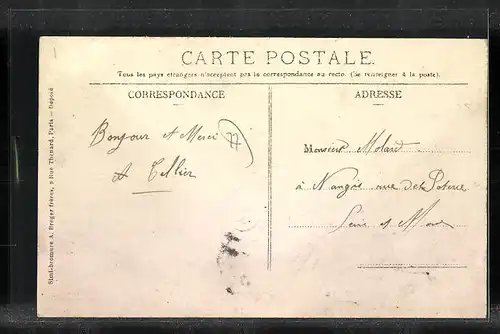 CARTE POSTALE.
Tous les pays étrangers n'acceptent pas la correspondance au recto. (Se renseigner à la poste).
CORRESPONDANCE
ADRESSE
Bonjour et Merci
A Tellier
77
Monsieur Molard
à Nangis rue de la Poterie
Seine et Marne
Simili-bromure A. Breger frères, 9 Rue Thénard, Paris — Déposé